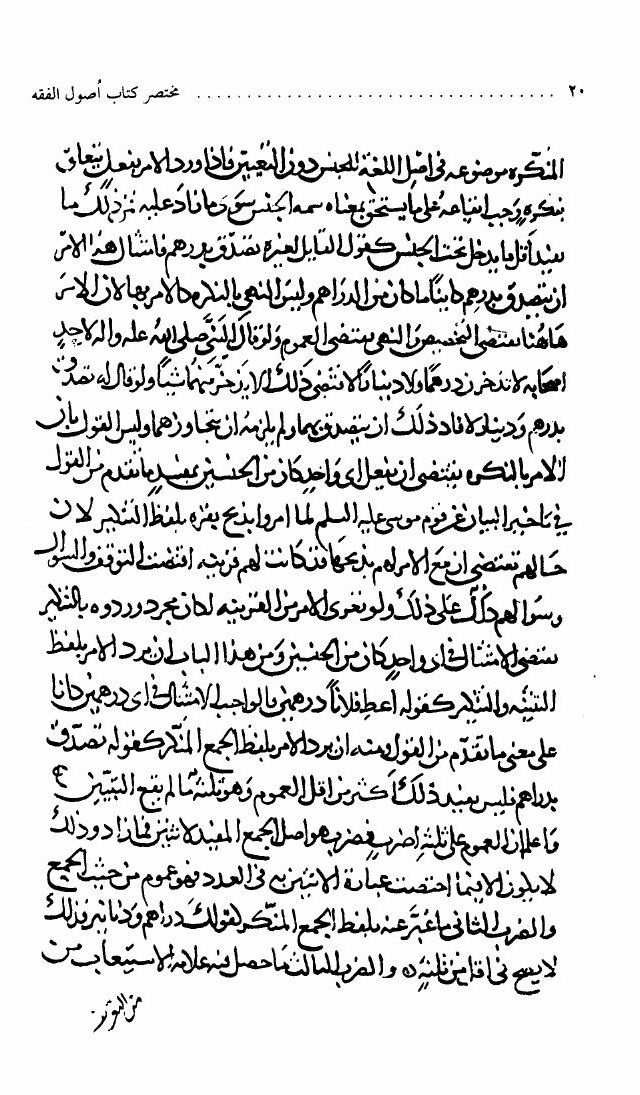 ٢٠ ........ مختصر كتاب أصول الفقه
المنكره موضوعه فى اصل اللغة للجنس دون التعيين فاذا ورد الامر بفعل يتعلق
بنكره وجب ايقاعه على ما يستحق بمعناه سمه الجنس سوى ما زاد عليه من ذلك ما
يفيد اقل ما يدخل تحت الجنس كقول القايل لغيره تصدق بدرهم فامتثال هذا الامر
ان يتصدق بدرهم كاينا ما كان من الدراهم وليس النهى بالنكره كالامر بها لان الامر
هاهنا يقتضى التخصيص والنهى يقتضى العموم ولو قال النبى صلى الله عليه واله لاحد
اصحابه لا تدخرن درهما ولا دينارا لاقتضى ذلك الا يدخر منهما شيئا ولو قال له تصدق
بدرهم ودينار لافاد ذلك ان يتصدق بهما ولم يلزمه ان يتجاوزهما وليس القول بان
الامر بالنكره يقتضى ان يفعل اى واحد كان من الجنس بمفسد ما تقدم من القول
فى تاخير البيان عن قوم موسى عليه السلم لما امروا بذبح بقره بلفظ التنكير لان
حالهم تقتضى ان مع الامر لهم بذبحها قد كانت لهم قرينه اقتضت التوقف والسوال
وسوالهم دال على ذلك ولو تعرى الامر من القرينه لكان مجرد وروده بالتنكير
يقتضى الامتثال فى اى واحد كان من الجنس ومن هذا الباب ان يرد الامر بلفظ
التثنيه والتنكير كقوله اعط فلانا درهمين فالواجب الامتثال فى اى درهمين كانا
على معنى ما تقدم من القول ومنه ان يرد الامر بلفظ الجمع المنكر كقوله تصدق
بدراهم فليس يفيد ذلك اكثر من اقل العموم وهو ثلثه ما لم يقع التبيين
واعلم ان العموم على ثلثه اضرب فضرب هو اصل الجمع المفيد لاثنين فما زاد وذلك
لا يكون الا فيما اختصت عبارة الاثنين به فى العدد فهو عموم من حيث الجمع
والضرب الثانى ما عبر عنه بلفظ الجمع المنكر كقولك دراهم ودنانير فذلك
لا يصح فى اقل من ثلثه والضرب الثالث ما حصل فيه علامه الاستيعاب من